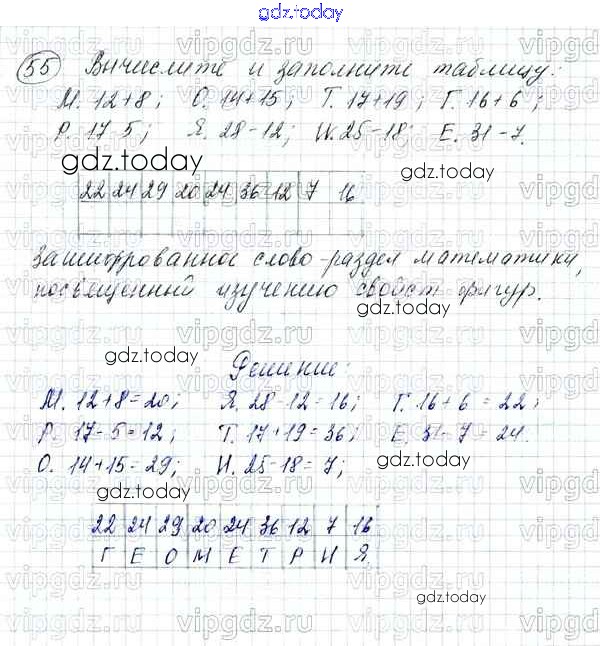 gdz.today
55 Вычислите и заполните таблицу:
М. 12+8; О. 14+15; Т. 17+19; Г. 16+6;
Р. 17-5; Я. 28-12; И. 25-18; Е. 31-7.
gdz.today
gdz.today
22 24 29 20 24 36 12 7 16
Зашифрованное слово-раздел математики,
посвященный изучению свойст фигур.
gdz.today
gdz.today
Решение:
М. 12+8=20; Я. 28-12=16; Г. 16+6=22;
Р. 17-5=12; Т. 17+19=36; Е. 31-7=24.
О. 14+15=29; И. 25-18=7;
gdz.today
gdz.today
22 24 29 20 24 36 12 7 16
Г Е О М Е Т Р И Я
gdz.today
vipgdz.uz